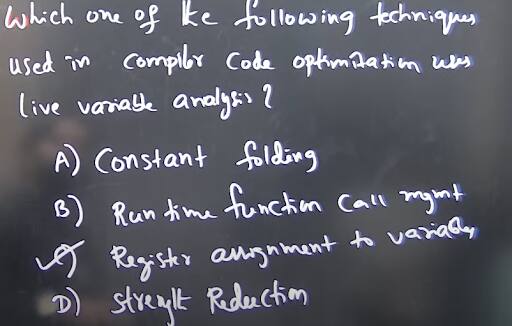 Which one of the following techniques
used in compiler code optimization uses
live variable analysis?
A) Constant folding
B) Run time function call mgmt
C) Register assignment to variables
D) Strength Reduction